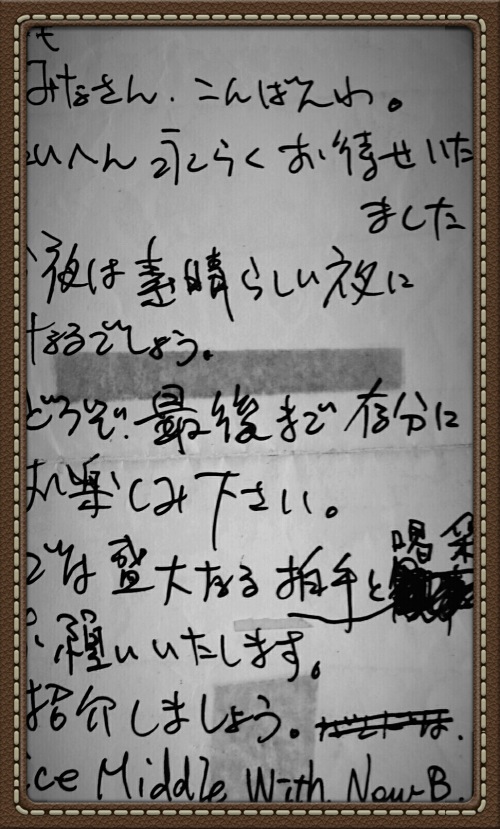 も
みなさん、こんばんわ。
いへん永らくお待せいた
ました
夜は素晴らしい夜に
なるでしょう。
どうぞ、最後まで存分に
お楽しみ下さい。
では盛大なる拍手と喝采
お願いいたします。
紹介しましょう。
ice Middle With New B.